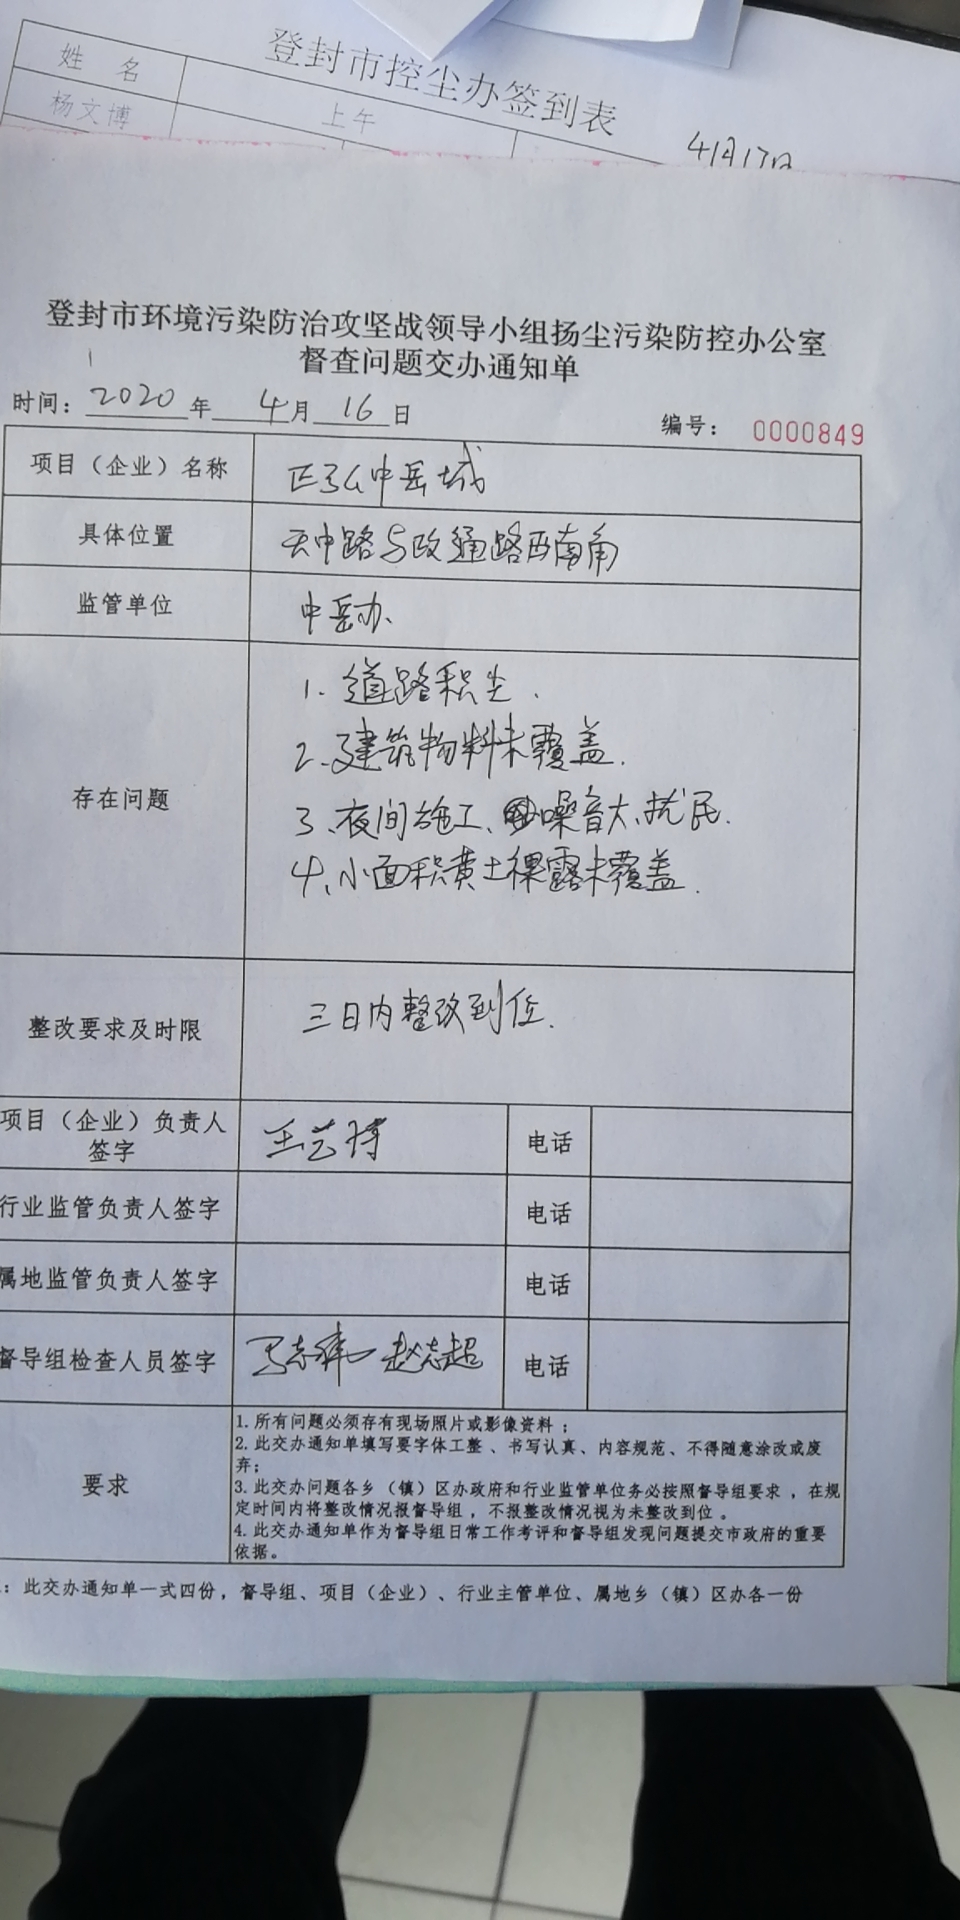 登封市控尘办签到表
姓 名
上午
杨文博
4月17日
登封市环境污染防治攻坚战领导小组扬尘污染防控办公室
督查问题交办通知单
时间: 2020 年 4 月 16 日
编号: 0000849
项目（企业）名称 正弘中岳城
具体位置 天中路与政通路西南角
监管单位 中岳办、
存在问题
1. 道路积尘.
2、建筑物料未覆盖.
3、夜间施工、噪音大、扰民.
4、小面积黄土裸露未覆盖.
整改要求及时限 三日内整改到位.
项目（企业）负责人
签字
电话
行业监管负责人签字 电话
属地监管负责人签字 电话
督导组检查人员签字 赵志超 电话
要求
1. 所有问题必须存有现场照片或影像资料；
2. 此交办通知单填写要字体工整、书写认真、内容规范、不得随意涂改或废
弃；
3. 此交办问题各乡（镇）区办政府和行业监管单位务必按照督导组要求，在规
定时间内将整改情况报督导组，不报整改情况视为未整改到位。
4. 此交办通知单作为督导组日常工作考评和督导组发现问题提交市政府的重要
依据。
：此交办通知单一式四份，督导组、项目（企业）、行业主管单位、属地乡（镇）区办各一份